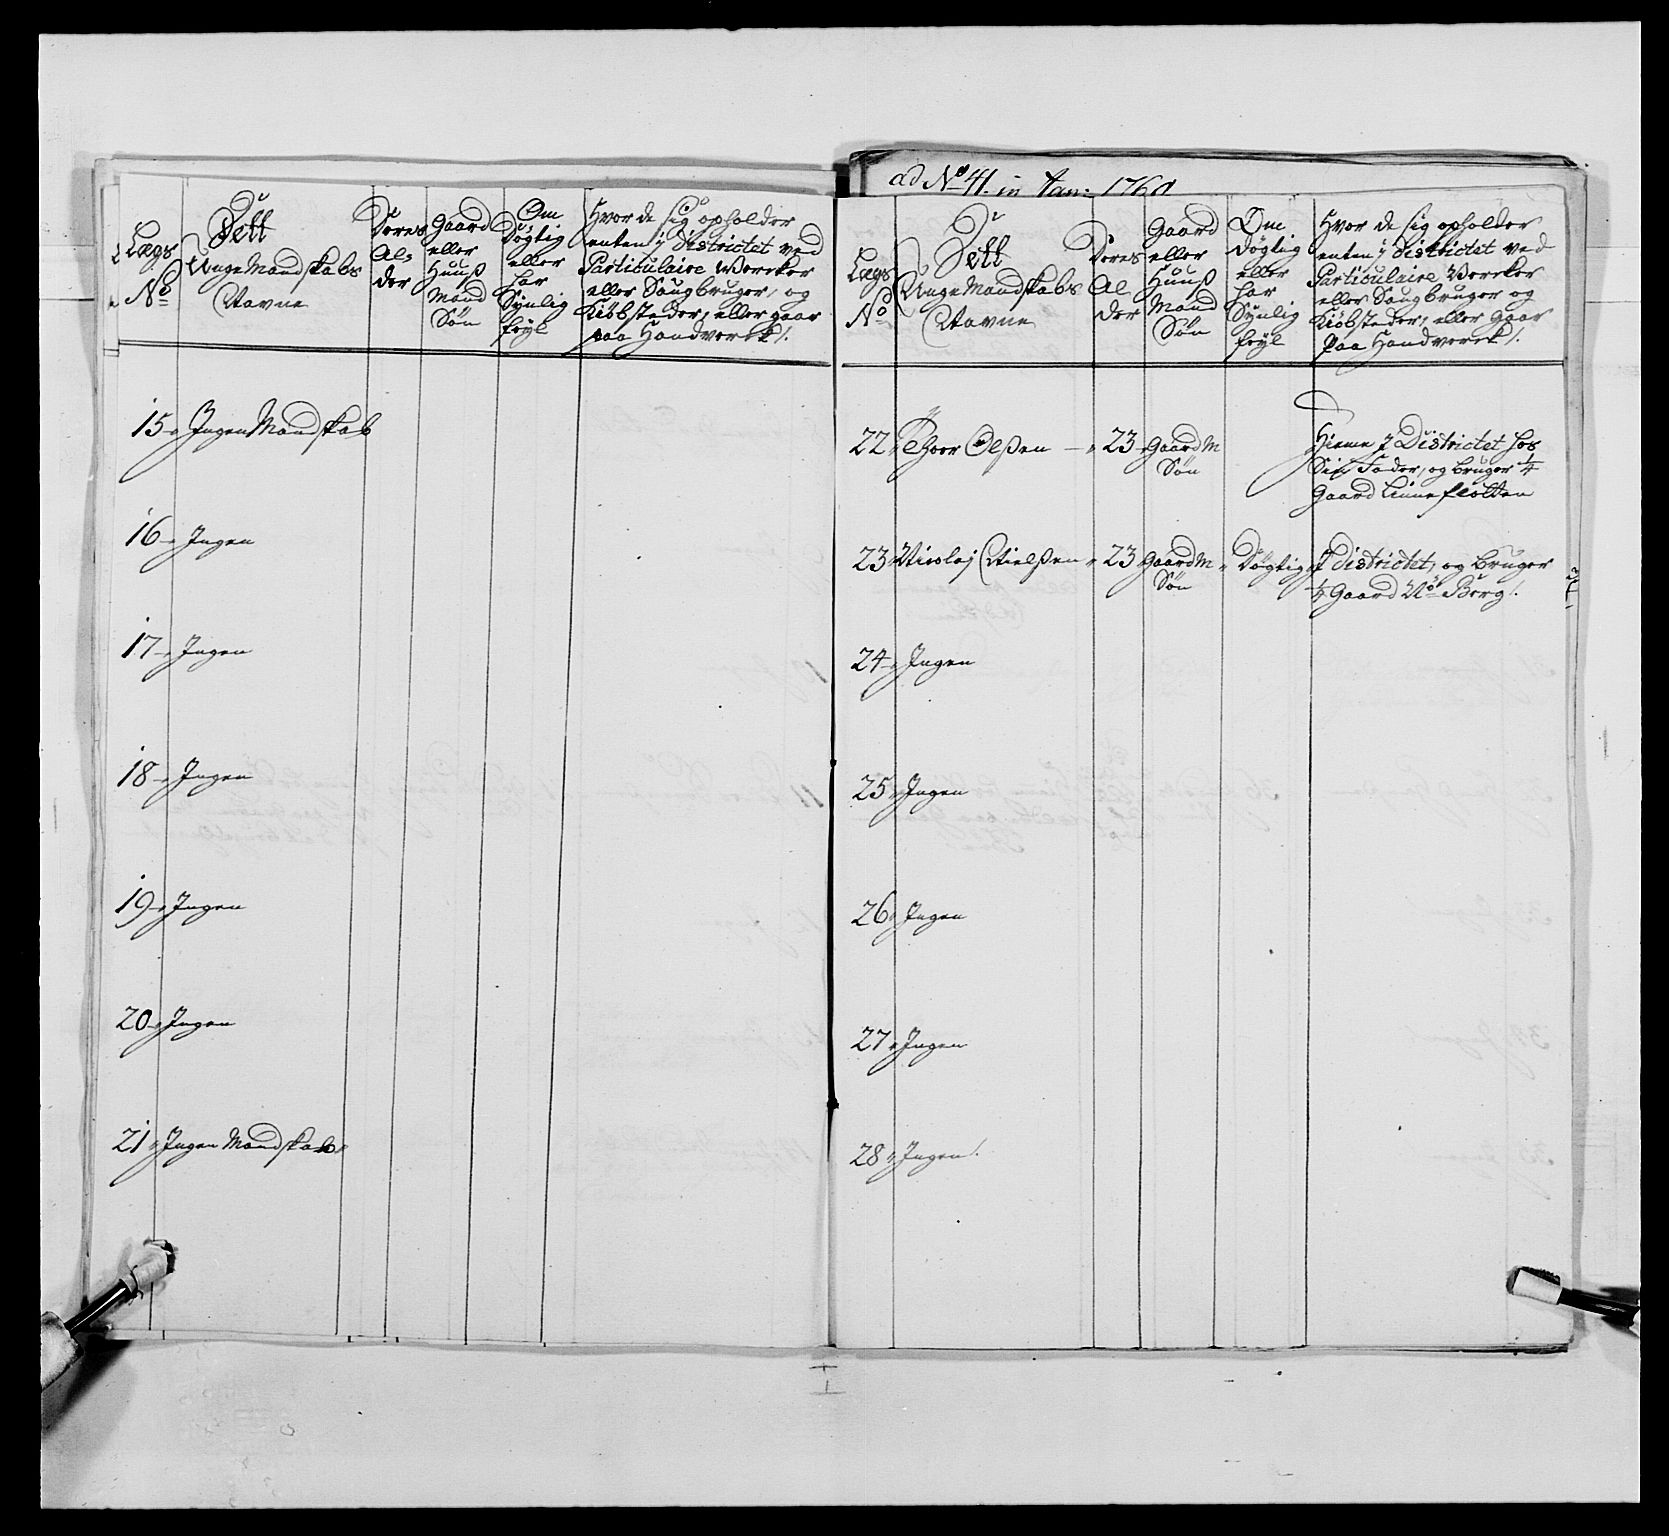 Lægs
No
Dett
Unge Mandskabs
Navne
Deres
Al-
der
Gaard
eller
Huuß
Mand
Søn
Om
Døgtig
eller
har
Synlig
feyl
Hvor de sig opholder
enten j Districtet ved
Particulaire Wercker
eller Saugbruger, og
Kiöbsteder, eller gaar
paa Handverck /.
15 Ingen Mandskab
16 Ingen
17 Ingen
18 Ingen
19 Ingen
20 Ingen
21 Ingen Mandskab
ad No 41. in Jan: 1760
Lægs
No
Dett
Unge Mandskabs
Navne
Deres
Al
der
Gaard
eller
Huuß
Mand
Søn
Om
Døgtig
eller
har
Synlig
feyl
Hvor de sig opholder
enten j Districtet ved
Particulaire Wercker
eller Saugbruger og
Kiöbsteder, eller gaar
paa Handverck /.
22 Thoer Olßen 23 Gaard M
Søn
Hieme j Districtet hos
Sin Fader, og bruger 1/4
Gaard Linneflotten
23 Nicolaj Nielßen 23 Gaard M
Søn
Døgtig
j Districtet, og bruger
1/4 Gaard No Berg /.
24 Ingen
25 Ingen
26 Ingen
27 Ingen
28 Ingen /.